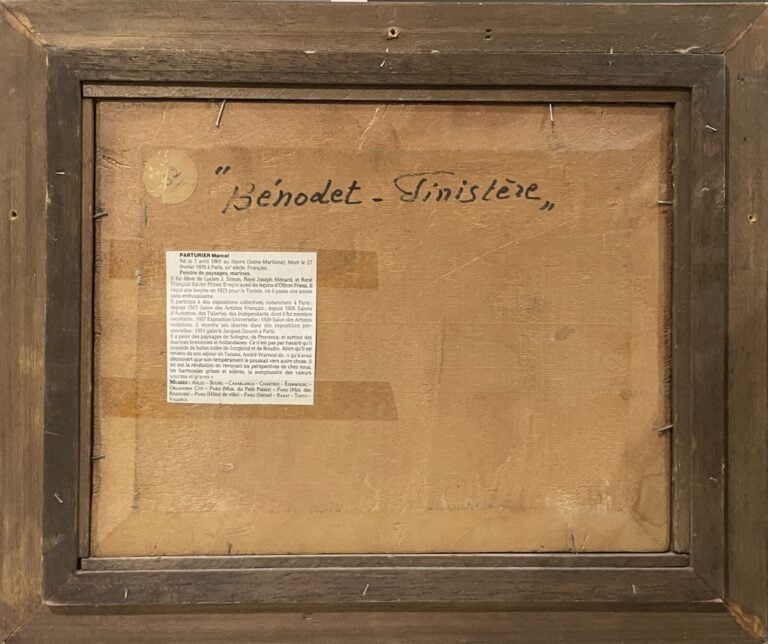 " Bénodet - Finistère „
PARTURIER Marcel
Né le 7 avril 1901 au Havre (Seine-Maritime). Mort le 27
février 1976 à Paris. XXe siècle. Français.
Peintre de paysages, marines.
Il fut élève de Lucien J. Simon, René Joseph Ménard, et René
François Xavier Prinet. Il reçut aussi les leçons d'Othon Friesz. Il
reçut une bourse en 1923 pour la Tunisie, où il passa une année
sans enthousiasme.
Il participa à des expositions collectives, notamment à Paris :
depuis 1921 Salon des Artistes Français ; depuis 1926 Salons
d'Automne, des Tuileries, des Indépendants, dont il fut membre
sociétaire ; 1937 Exposition Universelle ; 1939 Salon des Artistes
mobilisés. Il montra ses œuvres dans des expositions per-
sonnelles : 1951 galerie Jacques Dubourg à Paris.
Il a peint des paysages de Sologne, de Provence, et surtout des
marines bretonnes et hollandaises. Ce n'est pas par hasard qu'il
possède de belles toiles de Jongkind et de Boudin. Alors qu'il est
revenu de son séjour en Tunisie, André Warnod dit : « qu'il avait
découvert que son tempérament le poussait vers autre chose. Il
en eut la révélation en revoyant les perspectives de chez nous,
les harmonies grises et sobres, la somptuosité des valeurs
sourdes et graves ».
MUSÉES : ARLES – BOURG – CASABLANCA – CHARTRES – ÉDIMBOURG –
OKLAHOMA CITY – PARIS (Mus. du Petit Palais) – PARIS (Min. des
finances) – PARIS (Hôtel de ville) – PARIS (Sénat) – RABAT – TOKYO –
VALENCE.